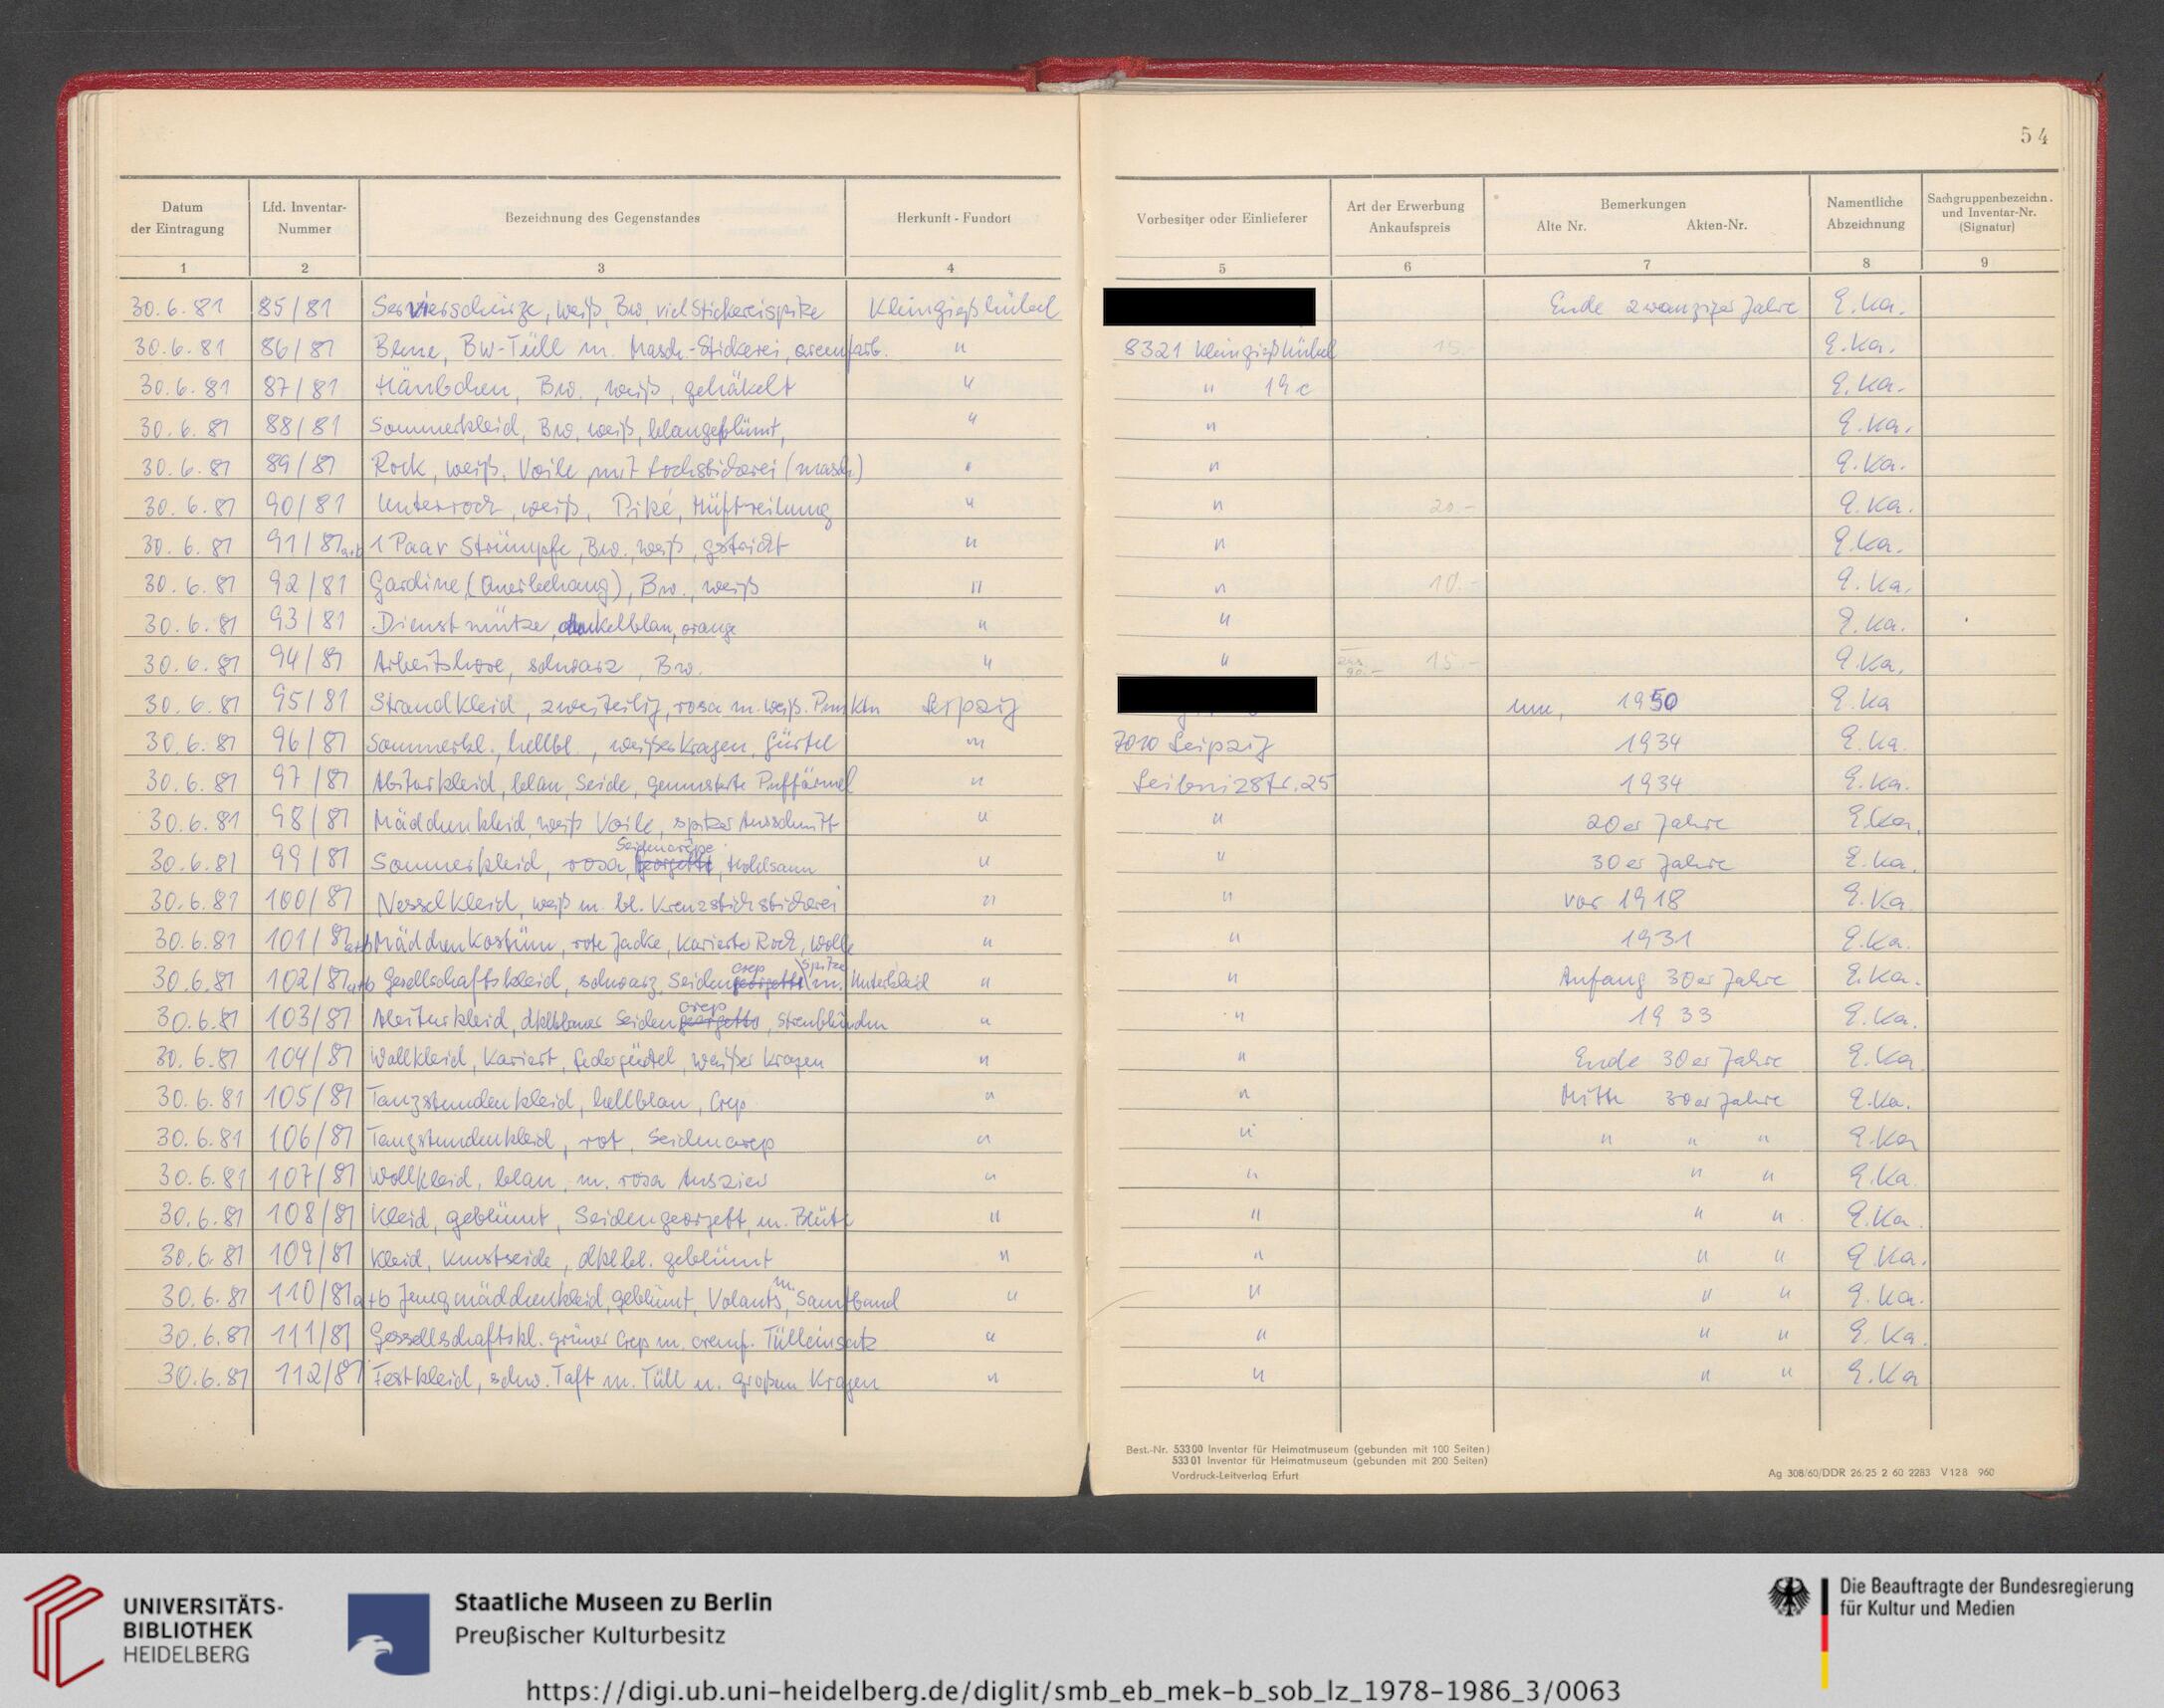 54
Datum der Eintragung | Lfd. Inventar-Nummer | Bezeichnung des Gegenstandes | Herkunft - Fundort | Vorbesitzer oder Einlieferer | Art der Erwerbung Ankaufspreis | Bemerkungen Alte Nr. Akten-Nr. | Namentliche Abzeichnung | Sachgruppenbezeichn. und Inventar-Nr. (Signatur)
1 | 2 | 3 | 4 | 5 | 6 | 7 | 8 | 9
30.6.81 | 85/81 | Servierschürze, weiß, Bw, viel Stickereispitze | Kleingießhübel | Ende zwanziger Jahre | E.Ka.
30.6.81 | 86/81 | Bluse, BW-Tüll m. Masch.-Stickerei, cremfarb. | " | 8321 Kleingießhübel | 15.- | E.Ka.
30.6.81 | 87/81 | Häubchen, Bw., weiß, gehäkelt | " | " 19c | E.Ka.
30.6.81 | 88/81 | Sommerkleid, Bw, weiß, blaugeblümt, | " | " | E.Ka.
30.6.81 | 89/81 | Rock, weiß, Voile, mit Lochstickerei (masch.) | " | " | E.Ka.
30.6.81 | 90/81 | Unterrock, weiß, Piké, | " | " | 20.- | E.Ka.
30.6.81 | 91/81a+b | 1 Paar Strümpfe, Bw., weiß, gestrickt | " | " | E.Ka.
30.6.81 | 92/81 | Gardine (Querbehang), Bw., weiß | " | " | 10.- | E.Ka.
30.6.81 | 93/81 | Dienstmütze, dunkelblau, orange | " | " | E.Ka.
30.6.81 | 94/81 | Arbeitshose, schwarz, Bw. | " | " | 15.- | E.Ka.
30.6.81 | 95/81 | Strandkleid, zweiteilig, rosa m. weiß. Punkten | Leipzig | um, 1950 | E.Ka
30.6.81 | 96/81 | Sommerkl., hellbl., weißer Kragen, Gürtel | " | 7010 Leipzig | 1934 | E.Ka.
30.6.81 | 97/81 | Abiturkleid, blau, Seide, gemusterte Puffärmel | " | Leibnizstr. 25 | 1934 | E.Ka.
30.6.81 | 98/81 | Mädchenkleid, weiß Voile, spitzer Ausschnitt | " | " | 20er Jahre | E.Ka.
30.6.81 | 99/81 | Sommerkleid, rosa, Seidencrepe georgette, Hohlsaum | " | " | 30er Jahre | E.Ka.
30.6.81 | 100/81 | Nesselkleid, weiß m. bl. Kreuzstichstickerei | " | " | vor 1918 | E.Ka
30.6.81 | 101/81a+b | Mädchenkostüm, rote Jacke, karierter Rock, Wolle | " | " | 1931 | E.Ka.
30.6.81 | 102/81a+b | Gesellschaftskleid, schwarz, Seidengeorgette crep Spitze m. Unterkleid | " | " | Anfang 30er Jahre | E.Ka.
30.6.81 | 103/81 | Abiturkleid, dklblauer Seidengeorgette crep, Streublümchen | " | " | 1933 | E.Ka.
30.6.81 | 104/81 | Wollkleid, kariert, Ledergürtel, weißer Kragen | " | " | Ende 30er Jahre | E.Ka
30.6.81 | 105/81 | Tanzstundenkleid, hellblau, Crep | " | " | Mitte 30er Jahre | E.Ka.
30.6.81 | 106/81 | Tanzstundenkleid, rot, Seidencrep | " | " | " " " | E.Ka
30.6.81 | 107/81 | Wollkleid, blau, m. rosa Auszier | " | " | " " | E.Ka
30.6.81 | 108/81 | Kleid, geblümt, Seidengeorgett, m. Blüte | " | " | " " | E.Ka.
30.6.81 | 109/81 | Kleid, Kunstseide, dklbl. geblümt | " | " | " " | E.Ka.
30.6.81 | 110/81a+b | Jungmädchenkleid, geblümt, Volants, m. Samtband | " | " | " " | E.Ka.
30.6.81 | 111/81 | Gesellschaftskl. grüner Crep m. cremf. Tülleinsatz | " | " | " " | E.Ka.
30.6.81 | 112/81 | Festkleid, schw. Taft m. Tüll u. großem Kragen | " | " | " " | E.Ka
Best.-Nr. 53300 Inventar für Heimatmuseum (gebunden mit 100 Seiten)
53301 Inventar für Heimatmuseum (gebunden mit 200 Seiten)
Vordruck-Leitverlag Erfurt
Ag 308/60/DDR 26 25 2 60 2283 V128 960
UNIVERSITÄTS-
BIBLIOTHEK
HEIDELBERG
Staatliche Museen zu Berlin
Preußischer Kulturbesitz
Die Beauftragte der Bundesregierung
für Kultur und Medien
https://digi.ub.uni-heidelberg.de/diglit/smb_eb_mek-b_sob_lz_1978-1986_3/0063